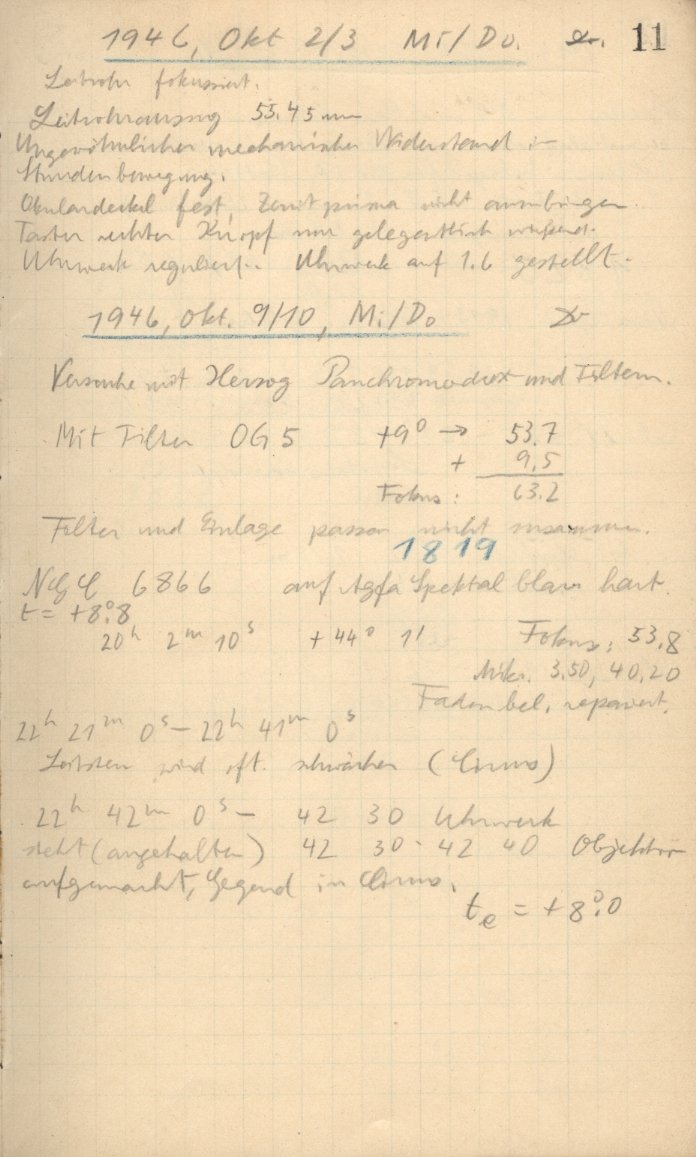 1946, Okt 2/3 Mi/Do. 11
Leitrohr fokussiert.
Leitrohrauszug 55.45 mm
Ungewöhnlicher mechanischer Widerstand in
Stundenbewegung.
Okulardeckel fest, Zenitprisma nicht anzubringen.
Taster rechter Knopf nur gelegentlich wirkend.
Uhrwerk reguliert. Uhrwerk auf 1.6 gestellt.
1946, Okt. 9/10, Mi/Do
Versuche mit Herzog Panchromodux und Filtern.
Mit Filter OG 5 +9° → 53.7
+ 9,5
Fokus: 63.2
Filter und Einlage passen nicht zusammen.
1819
NGC 6866 auf Agfa Spektal blau hart.
t = +8°.8
20h 2m 10s +44° 1' Fokus: 53,8
Mikr. 3.50, 40,20
Fadenbel. repariert.
22h 21m 0s – 22h 41m 0s
Leitstern wird oft schwächer (Cirrus)
22h 42m 0s – 42 30 Uhrwerk
steht (angehalten) 42 30 - 42 40 Objektiv
aufgemacht, Gegend in Cirrus.
te = +8°.0